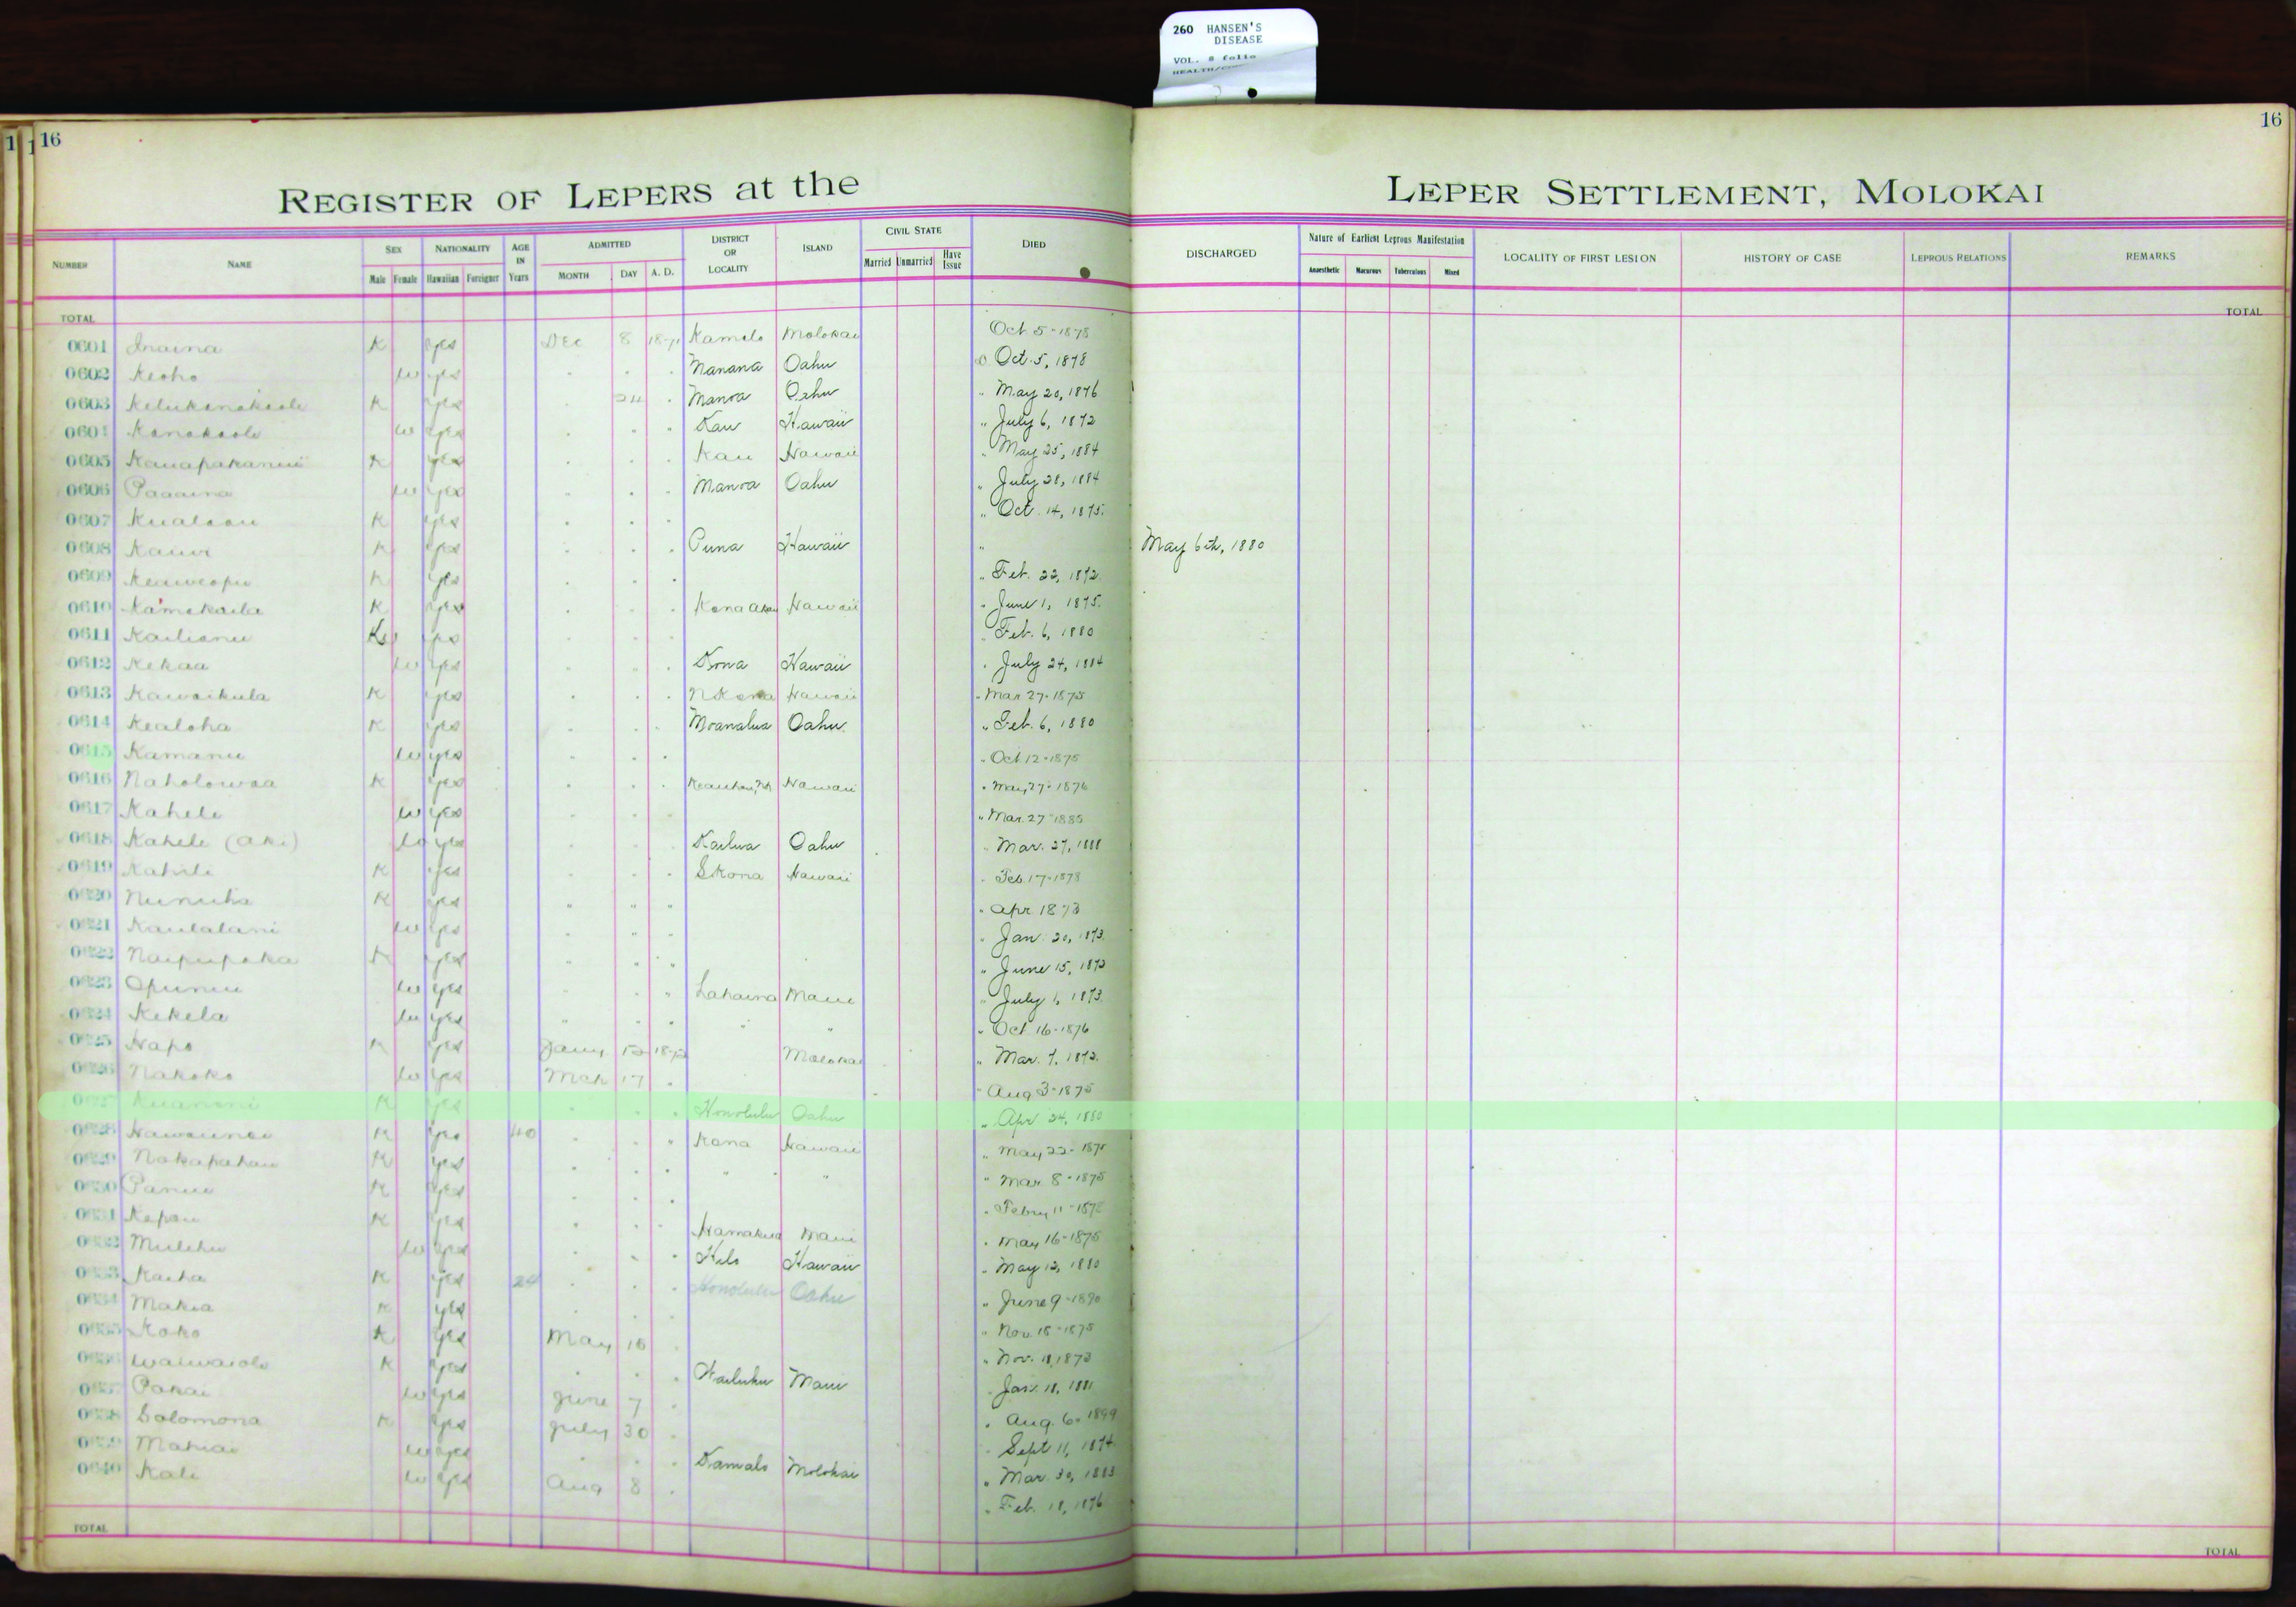 260 HANSEN'S
DISEASE
VOL. 8 folio
16
16
REGISTER OF LEPERS at the LEPER SETTLEMENT, MOLOKAI
NUMBER NAME SEX Male Female NATIONALITY Hawaiian Foreigner AGE IN Years ADMITTED MONTH DAY A. D. DISTRICT OR LOCALITY ISLAND CIVIL STATE Married Unmarried Have Issue DIED DISCHARGED Nature of Earliest Leprous Manifestation Anaesthetic Macurous Tuberculous Mixed LOCALITY OF FIRST LESION HISTORY OF CASE LEPROUS RELATIONS REMARKS
TOTAL TOTAL
0601 Inaina K yes Dec 8 1871 Kamalo Molokai Oct 5-1878
0602 Keoho w yes Manana Oahu Oct. 5, 1878
0603 K yes 24 Manoa Oahu " May 20, 1876
0604 Kanakaole w yes Kau Hawaii " July 6, 1872
0605 K yes Kau Hawaii " May 25, 1884
0606 Paaaina w yes Manoa Oahu " July 28, 1884
0607 Kualaau K yes " Oct. 14, 1875.
0608 Kauwi K yes Puna Hawaii " May 6th, 1880
0609 Keaweopu K yes " Feb. 22, 1872.
0610 Kamakaila K yes Kona Akau Hawaii " June 1, 1875.
0611 Kailianu yes " Feb. 6, 1880
0612 Kekaa w yes Kona Hawaii " July 24, 1884
0613 Kawaikula K yes N Kona Hawaii " Mar 27-1875
0614 Kealoha K yes Moanalua Oahu " Feb. 6, 1880
0615 Kamanu w yes " Oct 12-1875
0616 Naholowaa K yes Keauhou, Hawaii " May 27-1876
0617 Kahele w yes " Mar. 27-1885
0618 Kahele (aki) w yes Kailua Oahu " Mar. 27, 1888
0619 Kahili K yes S Kona Hawaii " Feb. 17-1878
0620 Nunuha K yes " " " " Apr 1873
0621 Kaulalani w yes " Jan. 20, 1873.
0622 Naipupaka K yes " June 15, 1873
0623 Opunui w yes Lahaina Maui " July 1, 1873.
0624 Kekela w yes " " " Oct 16-1876
Hapo K yes Jany 12 1872 Molokai " Mar. 7, 1872.
Nakoko w yes Mch 17 " Aug 3-1875
K yes Honolulu Oahu " Apr 24, 1880
0628 K yes 40 Kona Hawaii " May 22-1875
Nakapahau K yes " " " Mar 8-1875
Panui K yes " Febry 11-1872
Kapau K yes Hamakua Maui " May 16-1875
Mulehu w yes Hilo Hawaii " May 12, 1880
Kaiha K yes 24 Honolulu Oahu " June 9-1890
Makia K yes " Nov. 18-1875
Koko K yes May 10 " Nov. 11, 1873
Waiwaiole K yes Wailuku Maui Jan. 11, 1881
Pakai w yes June 7 " Aug. 6. 1899
Solomona K yes July 30 Sept 11, 1874
Mahiai w yes Kamalo Molokai " Mar. 30, 1883
0640 Kali w yes Aug 8 " Feb. 18, 1876
TOTAL TOTAL